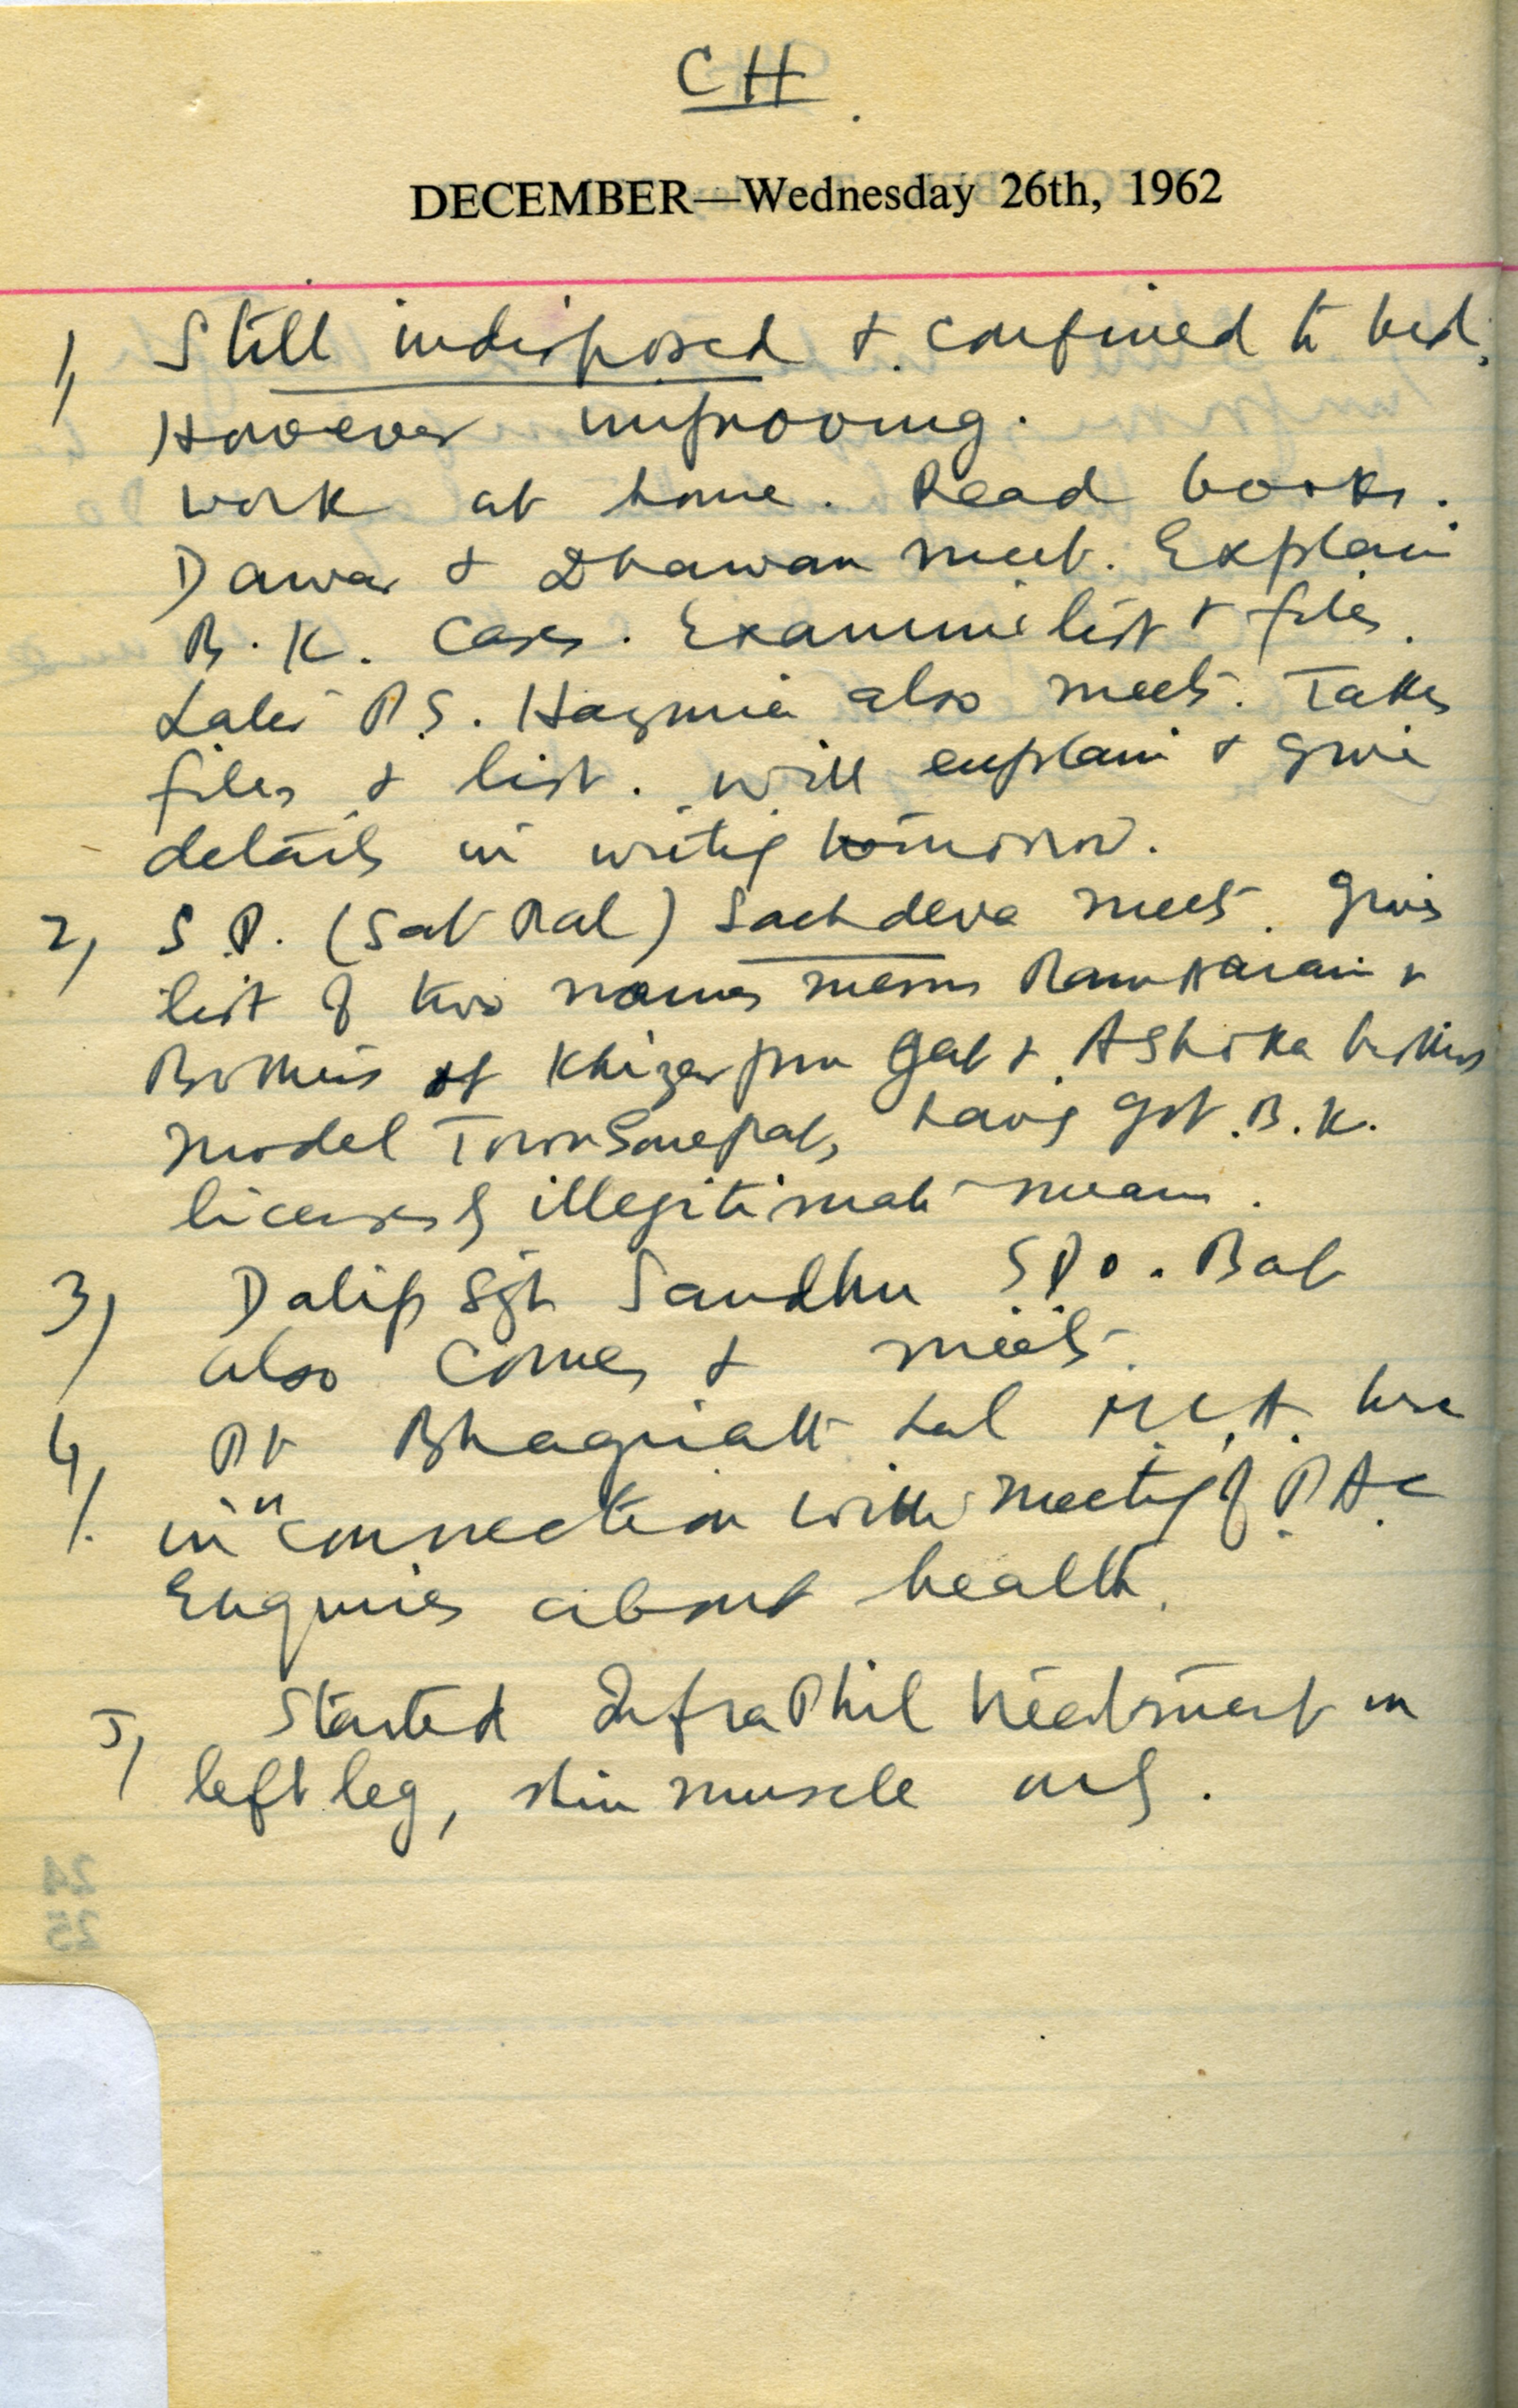 CH
DECEMBER—Wednesday 26th, 1962
1) Still indisposed & confined to bed.
However improving.
Work at home. Read books.
Dawar & Dhawan meet. Explain
B.K. Cases. Examine list & files.
Later P.S. also meets. Takes
files & list. Will explain & give
details in writing tomorrow.
2) S.P. (Sat Pal) Sachdeva meets. Gives
list of two names messrs Ram Narain &
Brothers of Khizarpur Jat & Ashoka brothers
Model Town Sonepat, having got B.K.
licenses by illegitimate means.
3) Dalip Sgh Sandhu SDO. Bat
also comes & meets.
4) Pt Bhagirath Lal M.L.A. here
in connection with meeting of P.A.C
Enquires about health.
5) Started InfraPhil treatment on
left leg, shin muscle only.
24
25